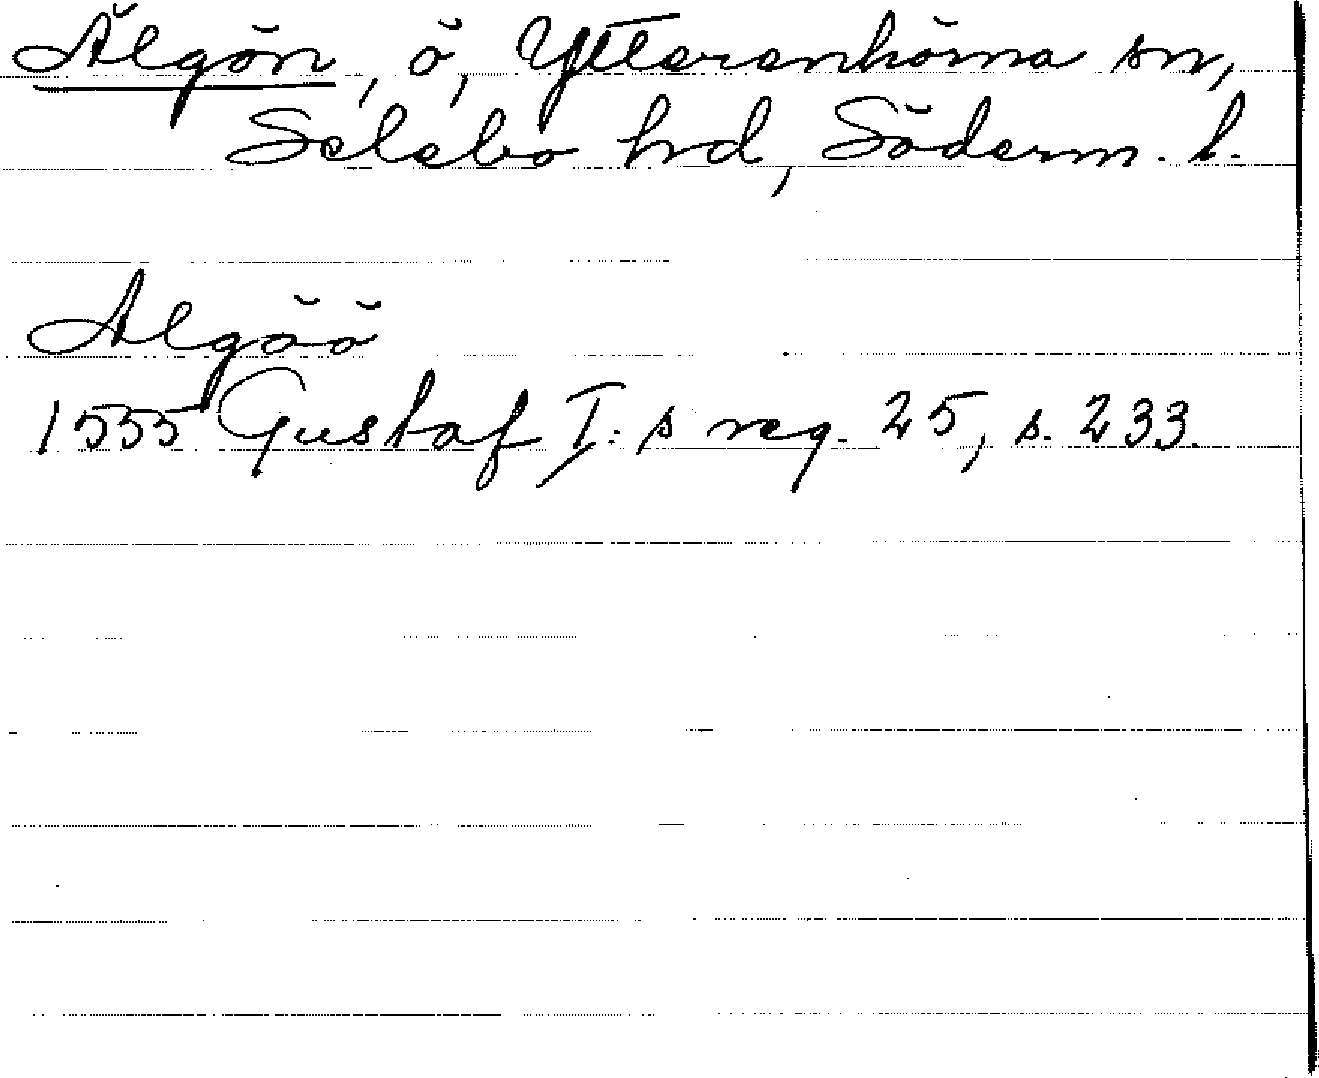 Älgön, ö, Ytterenhörna sn,
Selebo hrd, Söderm. l.
Algöö
1555 Gustaf I:s reg. 25, s. 233.